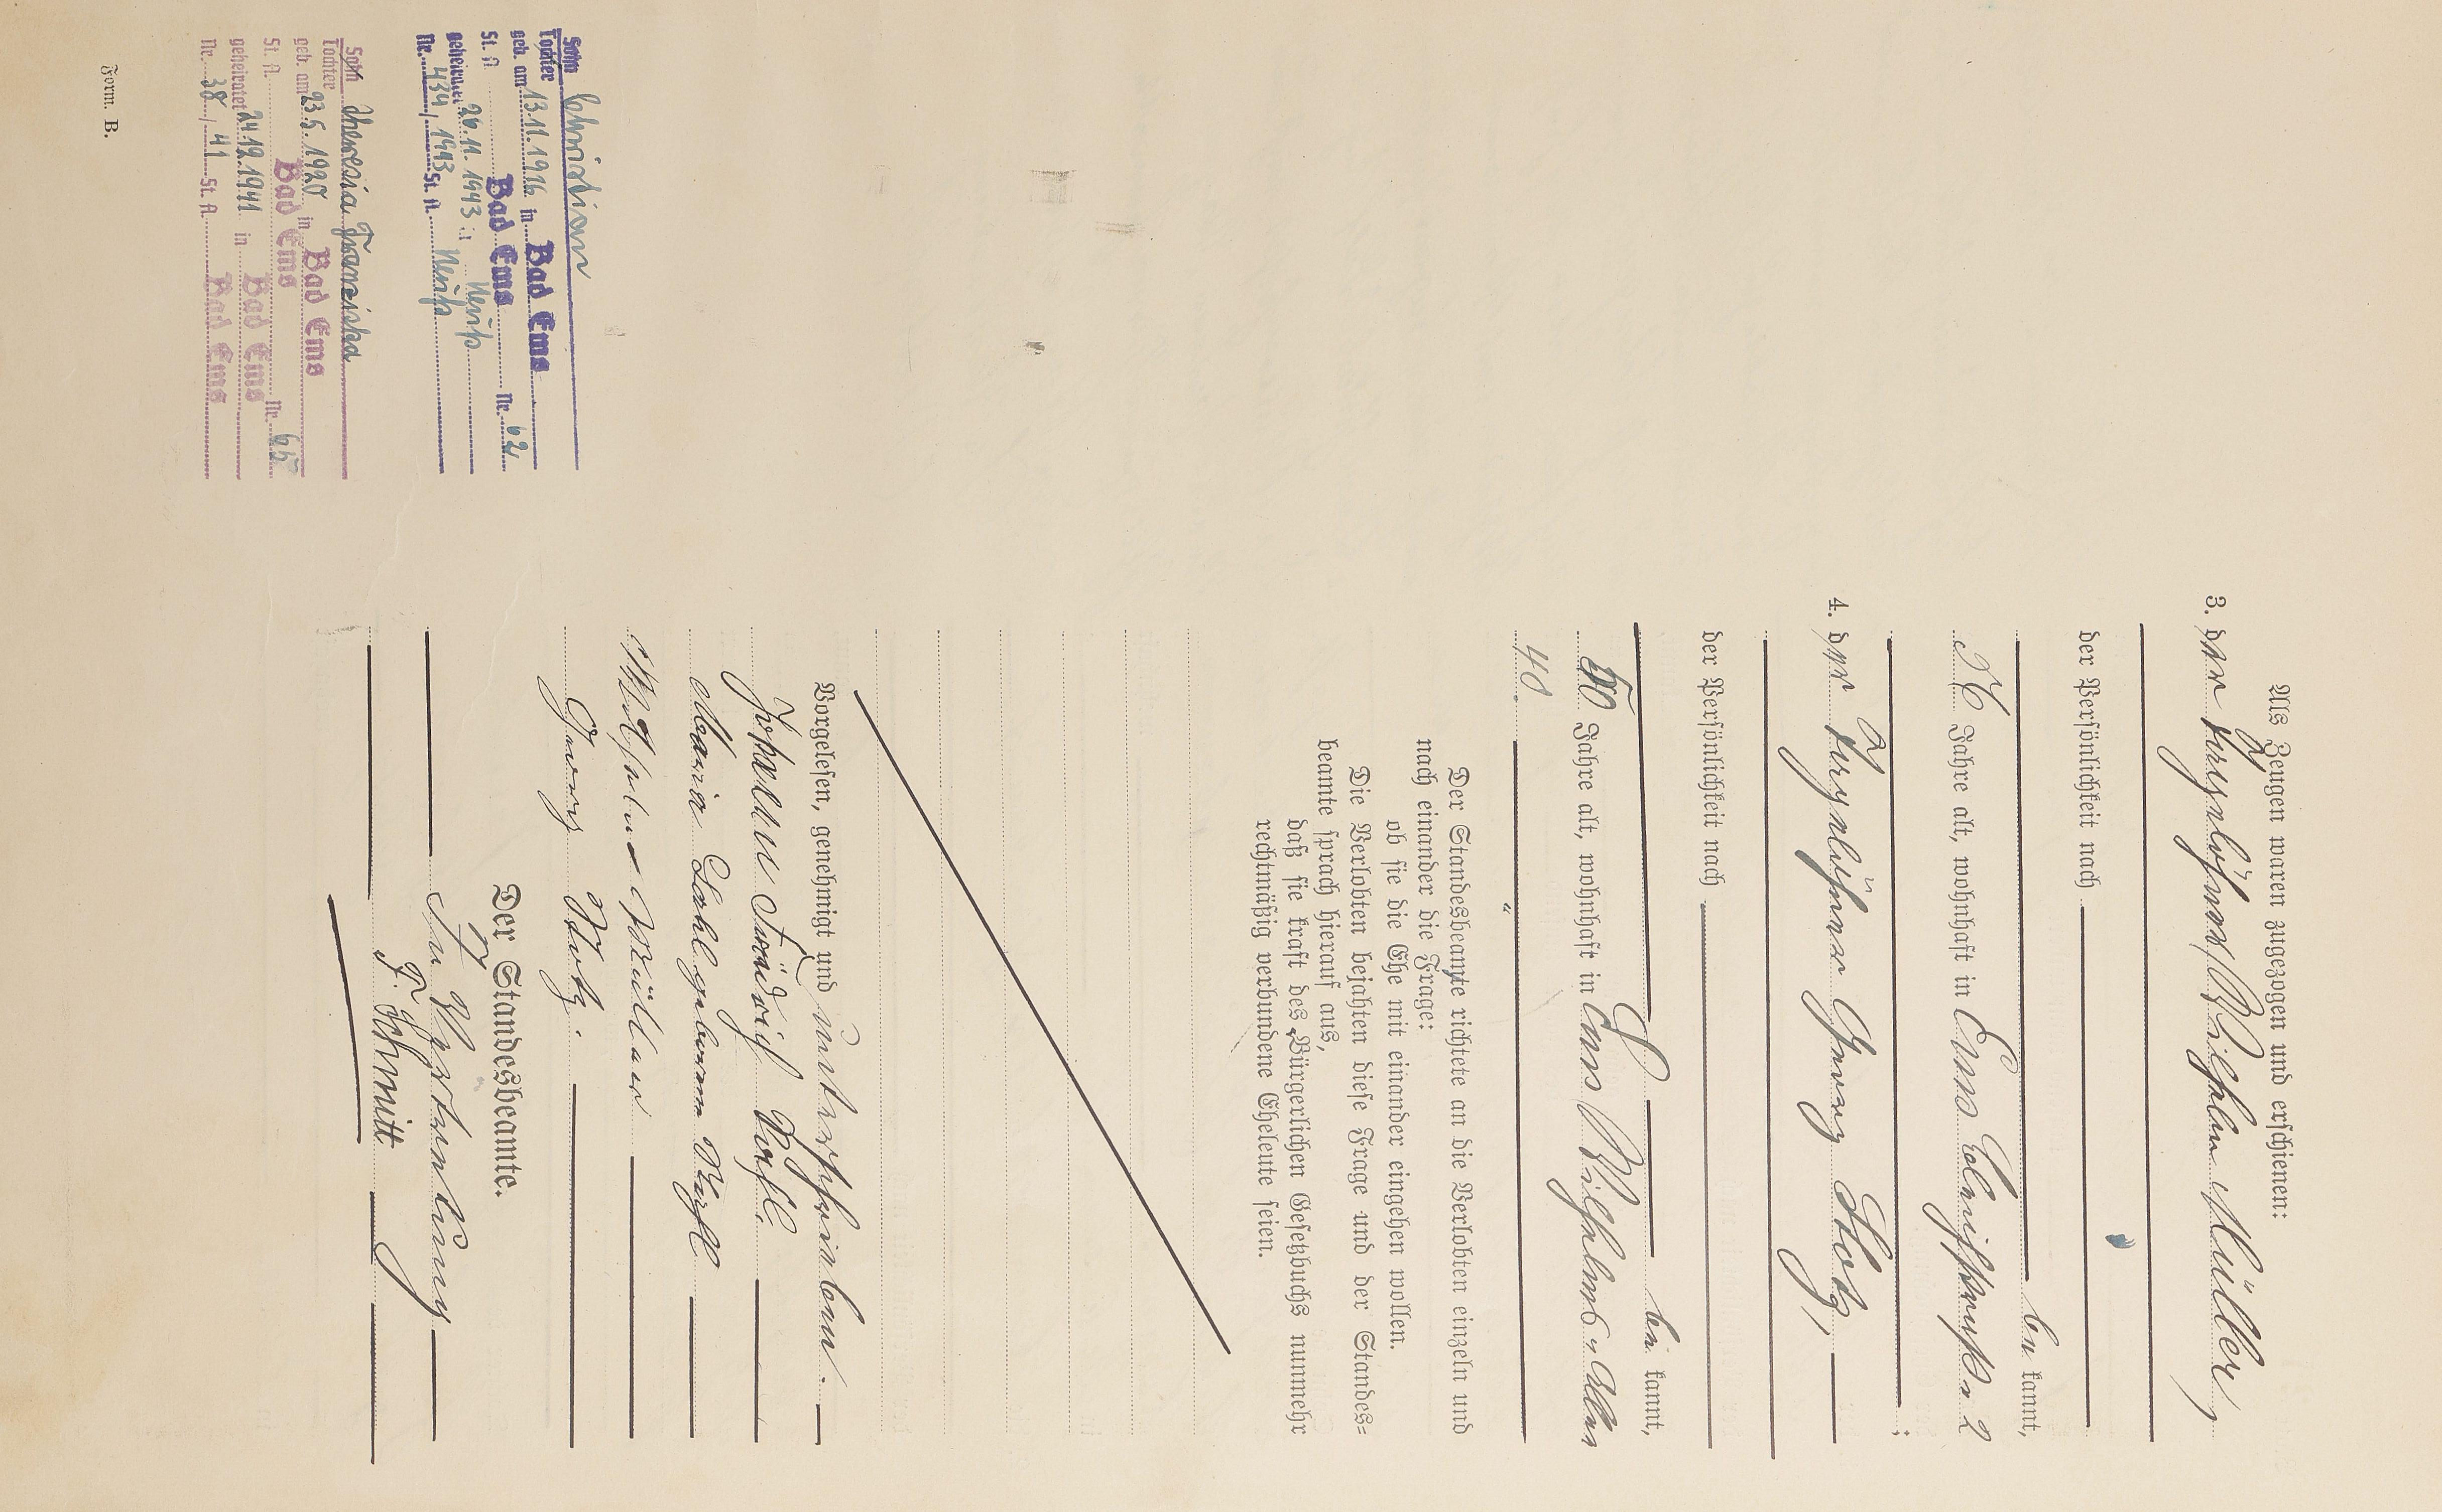 Als Zeugen waren zugezogen und erschienen:
3. der Tagelöhner Wilhelm Müller,
der Persönlichkeit nach
be kannt,
36 Jahre alt, wohnhaft in Ems
4. der Tagelöhner Georg Stotz,
der Persönlichkeit nach
be kannt,
50 Jahre alt, wohnhaft in Ems Wilhelms-Allee
40.
Der Standesbeamte richtete an die Verlobten einzeln und
nach einander die Frage:
ob sie die Ehe mit einander eingehen wollen.
Die Verlobten bejahten diese Frage und der Standes-
beamte sprach hierauf aus,
daß sie kraft des Bürgerlichen Gesetzbuchs nunmehr
rechtmäßig verbundene Eheleute seien.
Vorgelesen, genehmigt und unterschrieben.
Johann
Maria geborene
Wilhelm Müller
Georg Stotz.
Der Standesbeamte.
In Vertretung
F. Schmitt
Sohn Christian
Tochter
geb. am 13.11.1926 in Bad Ems
St. A. Bad Ems Nr. 62
geheiratet 26.11.1943 in Neuß
Nr. 434 / 1943 St. A. Neuß
Sohn Theresia Franziska
Tochter
geb. am 23.5.1920 in Bad Ems
St. A. Bad Ems Nr. 65
geheiratet 24.12.1941 in Bad Ems
Nr. 38 / 41 St. A. Bad Ems
Form. B.